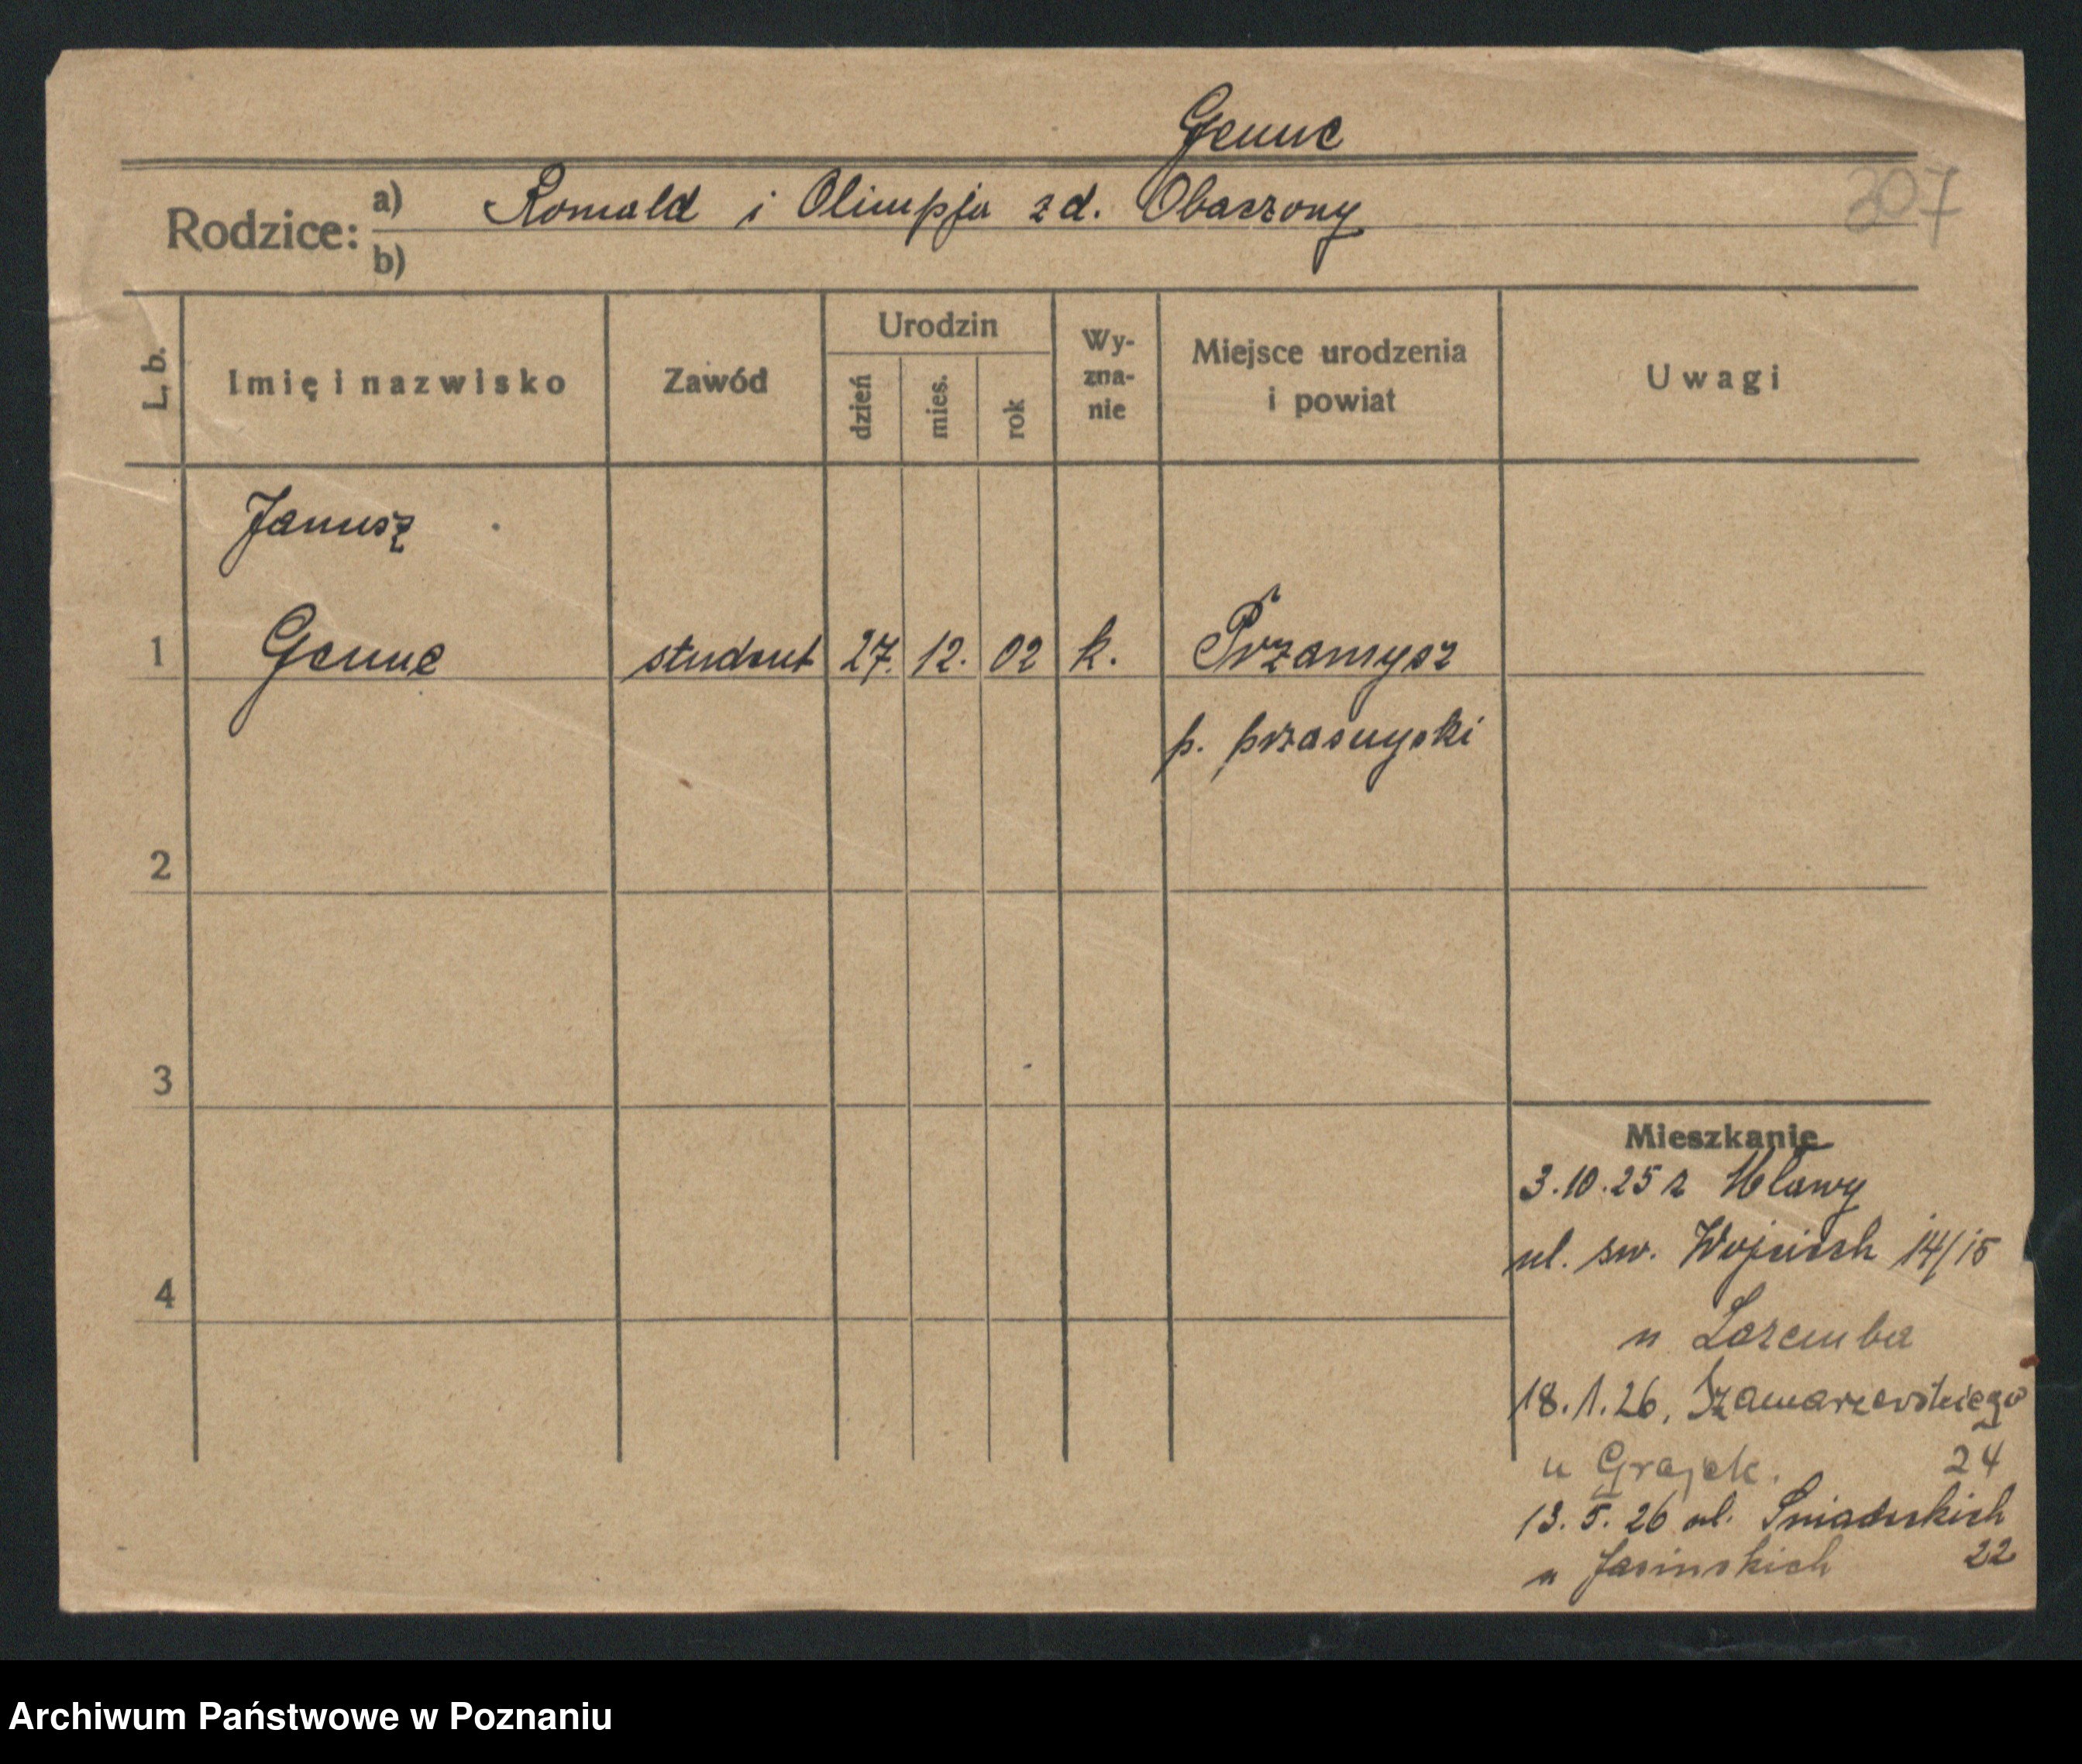 Genne
Rodzice: a) Romald i Olimpja zd. Obaczony
b)
307
L. b. Imię i nazwisko Zawód Urodzin dzień mies. rok Wy-zna-nie Miejsce urodzenia i powiat Uwagi
Janusz
1 Genne student 27. 12. 02 k. Przamysz
p. przasnyski
2
3
4
Mieszkanie
3.10.25 z Mławy
ul. św. Wojciech 14/15
u Zaremba
18.1.26, Szamarzewskiego
u Grajek. 24
13. 5. 26 ul. Śniadeckich
u Jasinskich 22
Archiwum Państwowe w Poznaniu